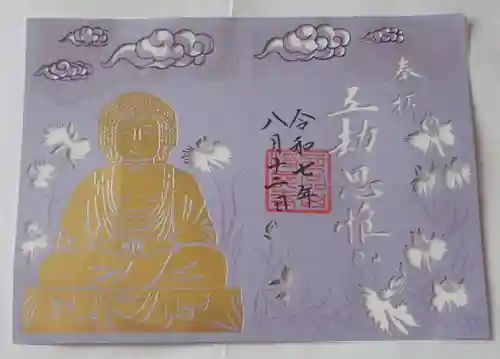 奉拝
五劫思惟
令和七年
八月十二日